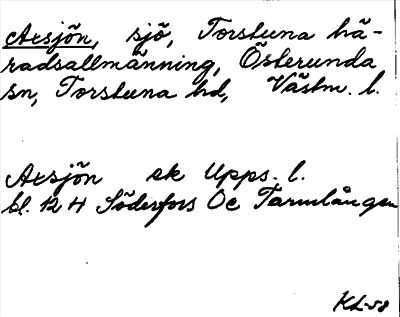 Axsjön, sjö, Torstuna hä-
radsallmänning, Österunda
sn, Torstuna hd, Västm. l.
Axsjön ek Upps. l.
bl. 12 H Söderfors Oc Tarmlången
KL-58